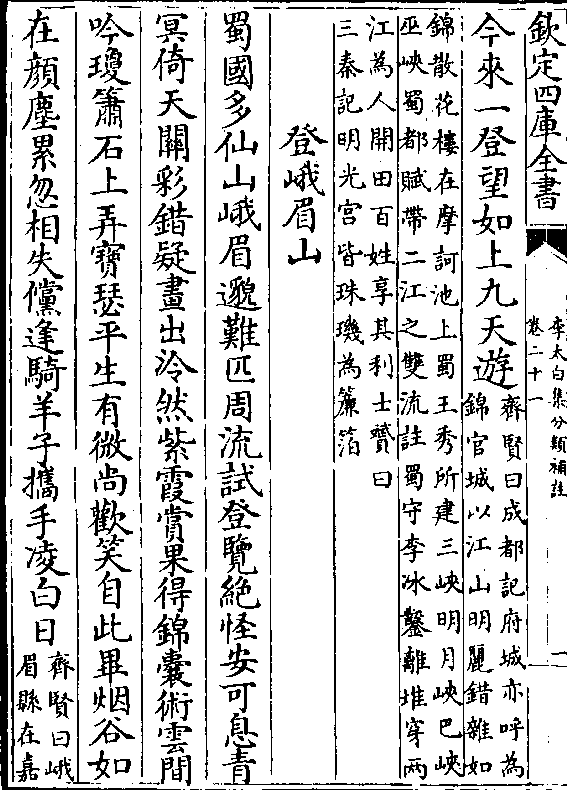 欽定四庫全書
李太白集分類補註
卷二十一
一
今來一登望如上九天遊
齊賢曰成都記府城亦呼為
錦官城以江山明麗錯雜如
錦散花樓在摩訶池上蜀王秀所建三峽明月峽巴峽
巫峽蜀都賦帶二江之雙流註蜀守李冰鑿離堆穿两
江為人開田百姓享其利士贇曰
三秦記明光宫皆珠璣為簾箔
登峨眉山
蜀國多仙山峨眉邈難匹周流試登覽絶怪安可息青
冥倚天開彩錯疑畫出泠然紫霞賞果得錦囊術雲間
吟瓊簫石上弄寶瑟平生有微尚歡笑自此畢烟谷如
在顔塵累忽相失儻逢騎羊子攜手凌白日
齊賢曰峨
眉縣在嘉